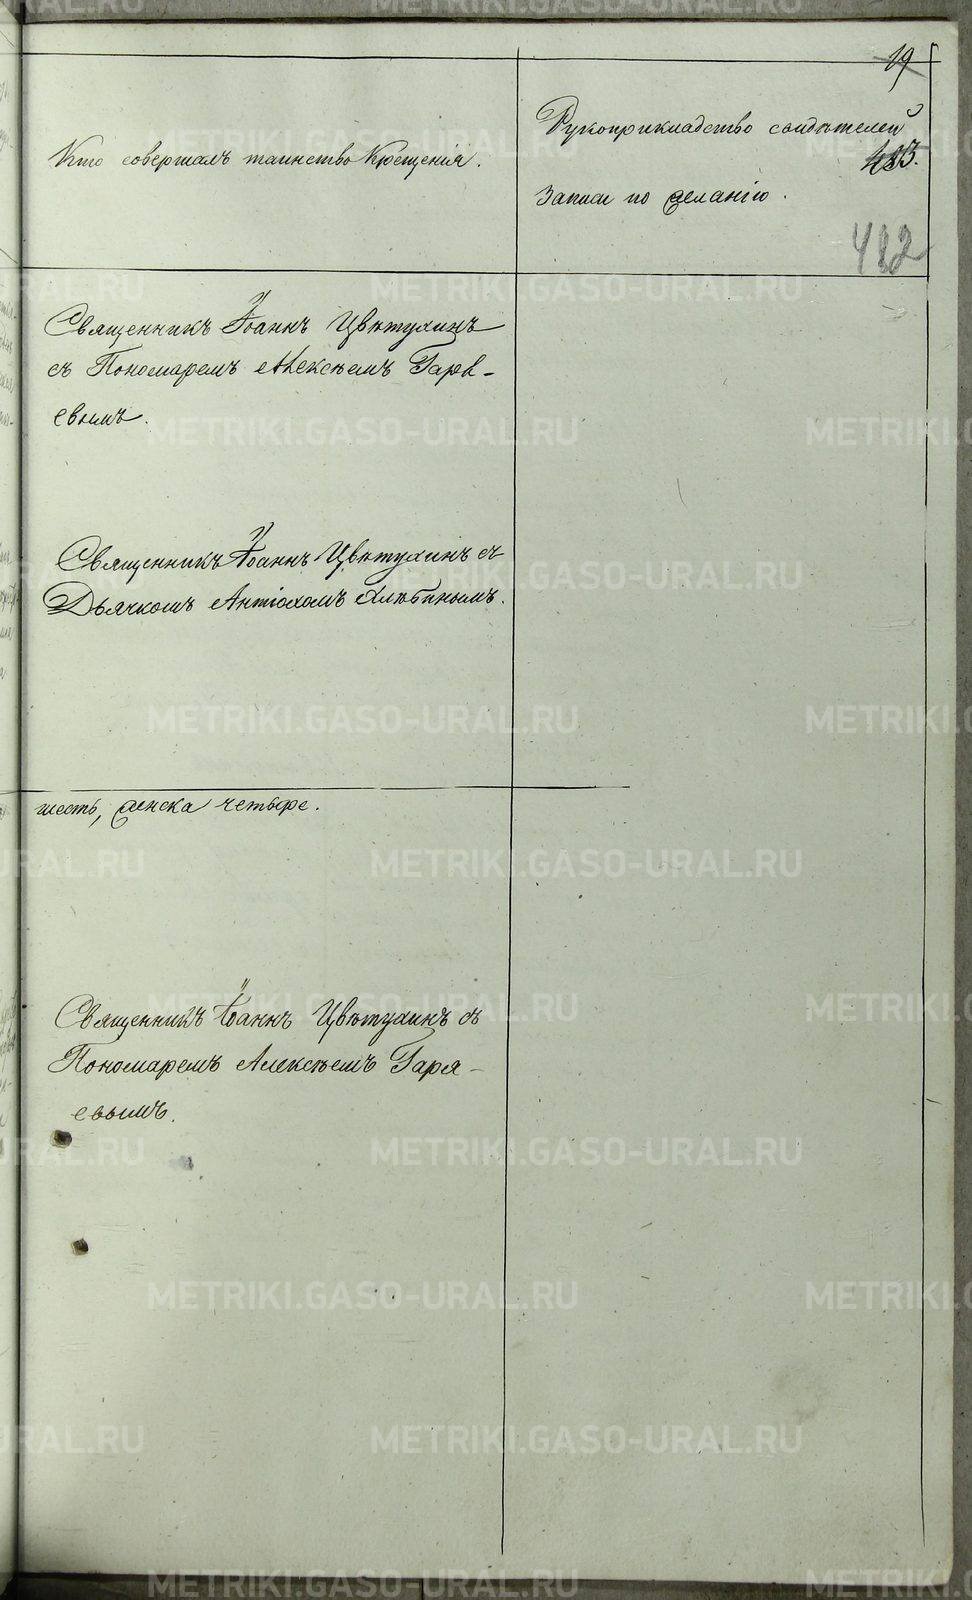 19
Кто совершалъ таинство Крещенія.
Рукоприкладство свидѣтелей
483.
записи по желанію.
482
Священникъ Іоаннъ Цвѣтухинъ
съ Пономаремъ Алексѣемъ Гаря-
евымъ.
Священникъ Іоаннъ Цвѣтухинъ съ
Дьячкомъ Антіохомъ Хлѣбинымъ.
шесть, женска четыре.
Священникъ Іоаннъ Цвѣтухинъ съ
Пономаремъ Алексѣемъ Гаря-
евымъ.
METRIKI.GASO-URAL.RU